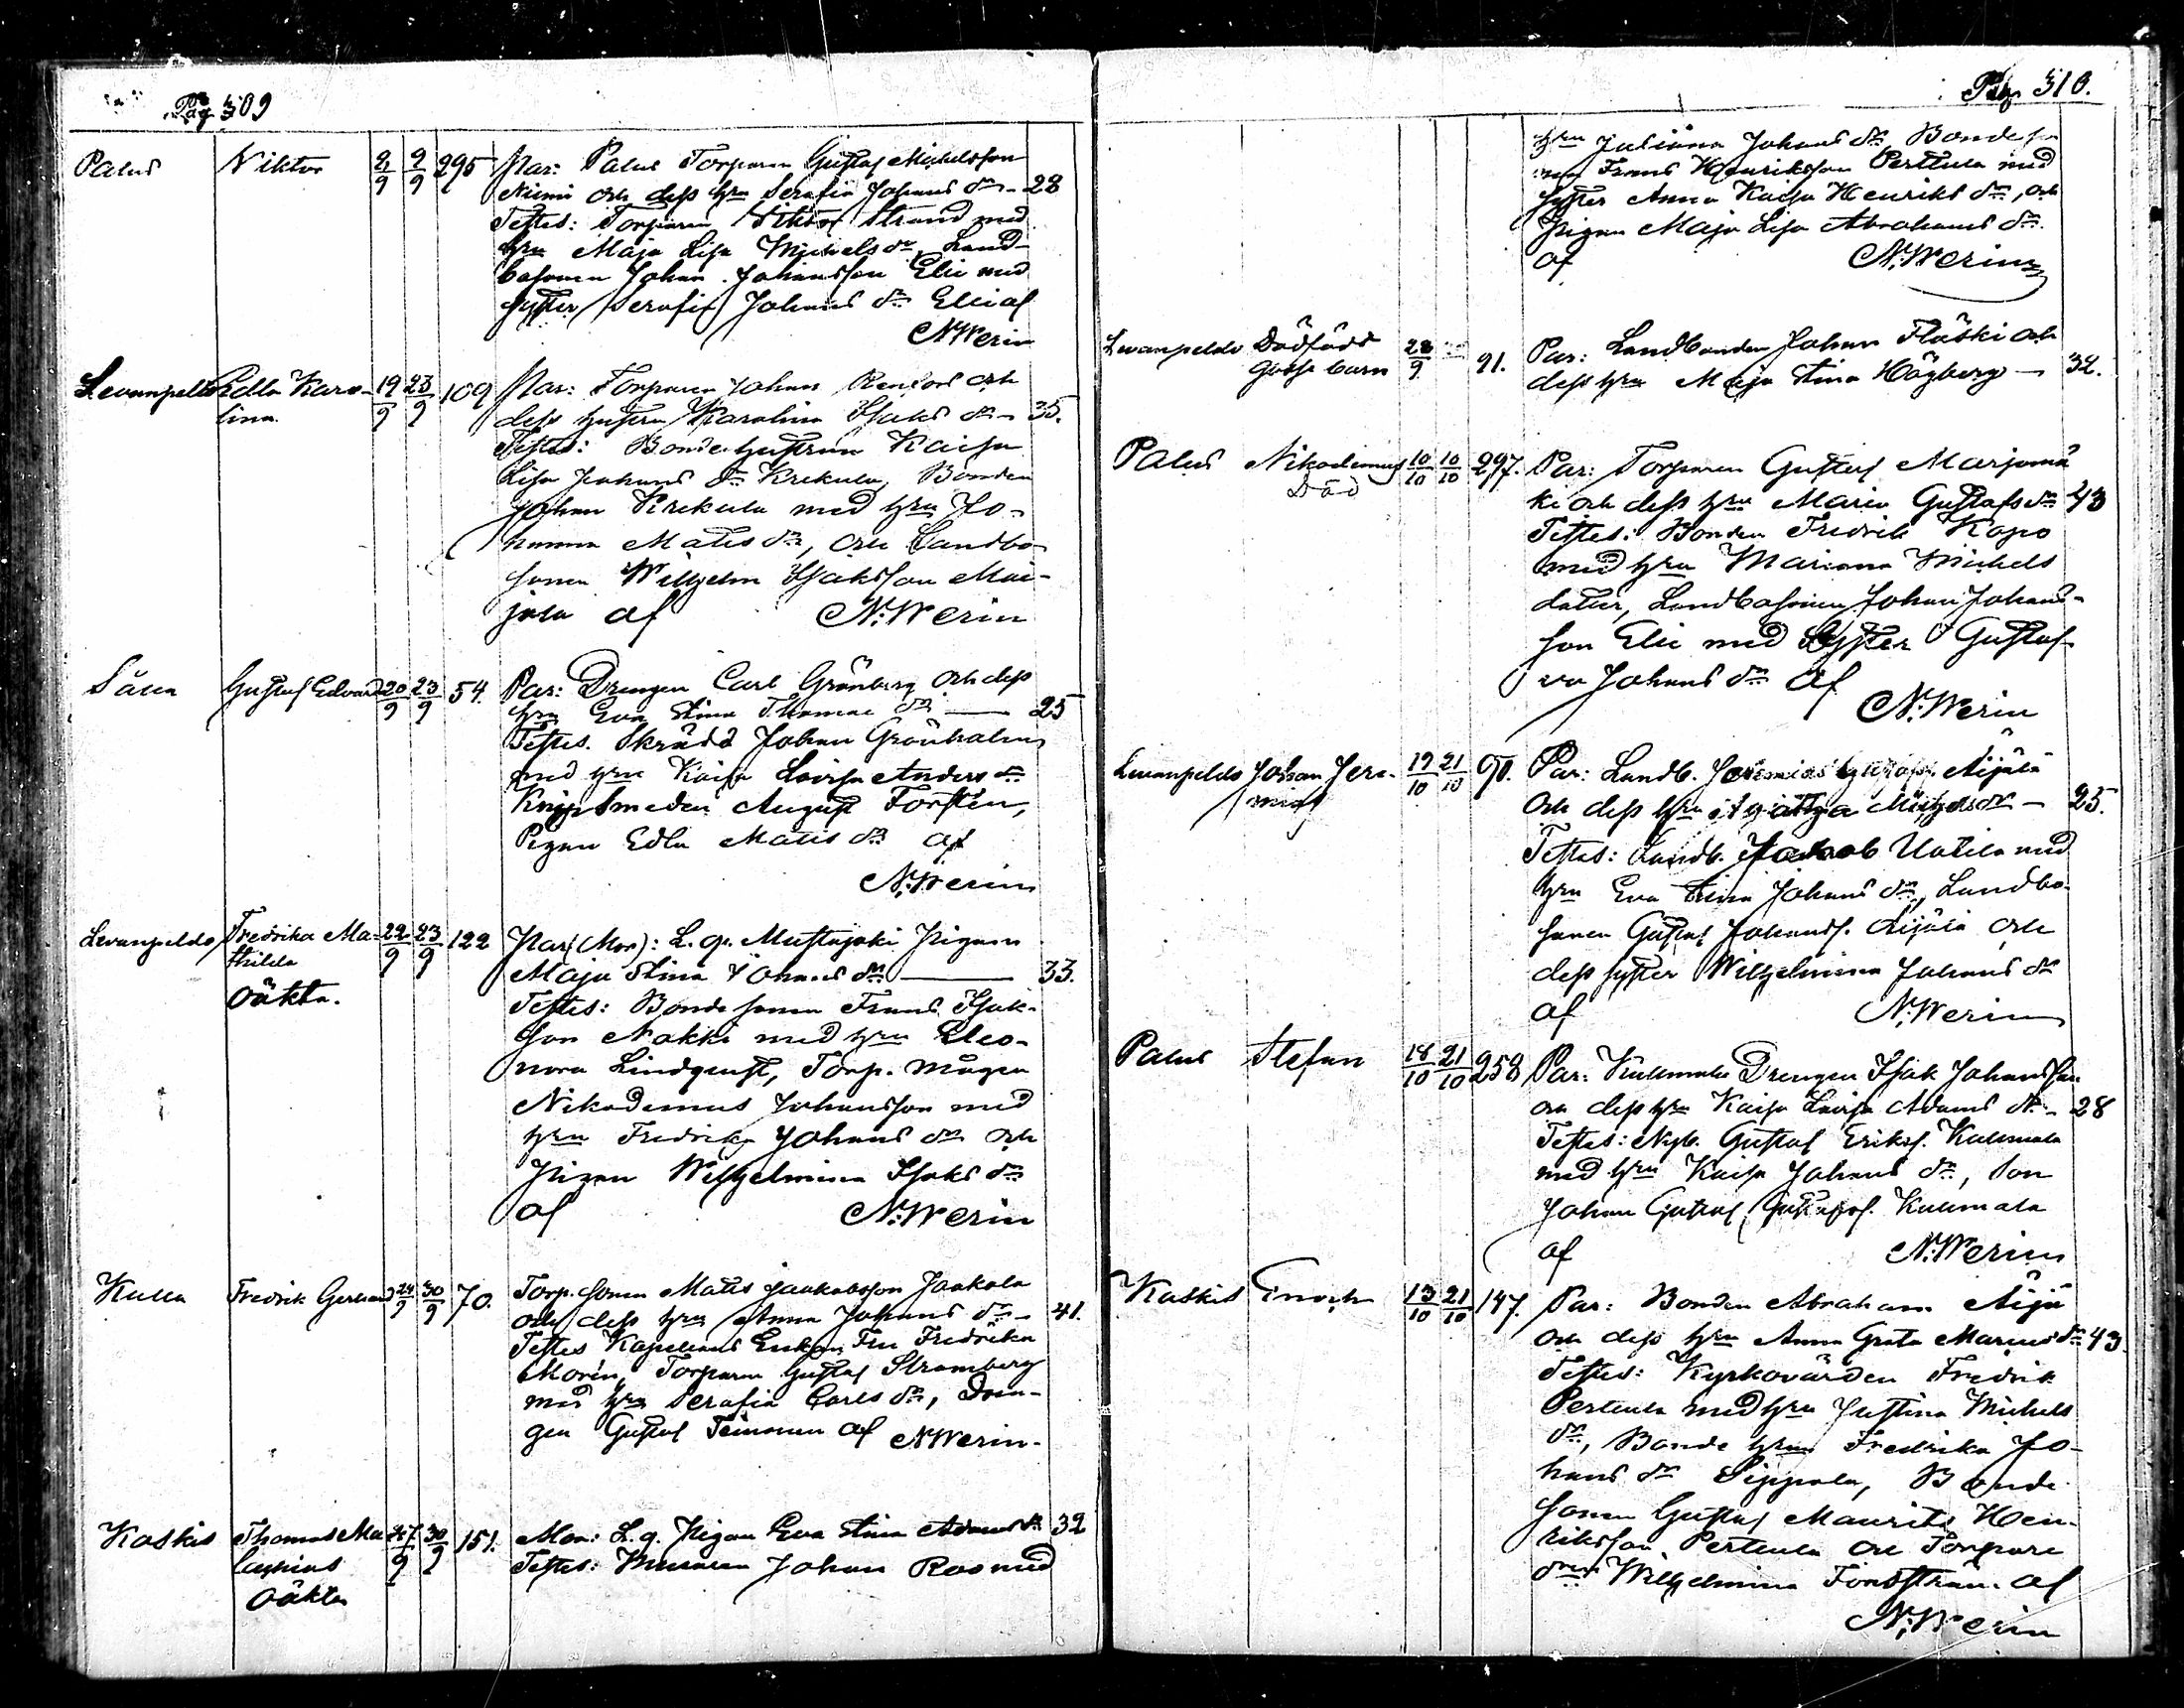 Pag 309
Palus Viktor 2/9 9/9 295 Par: Palus Torparen Gustaf Michelsson
Niemi och dess hru Serafia Johans dr - 28
Testes: Torparen Viktor Strand med
hru Maja Lisa Michels dr, Land-
bosonen Johan Johansson Elie med
syster Serafia Johans dr Elie af
N. Werin
Levanpelto Edla Karo- 19/9 23/9 109 Par: Torparen Johan Renfors och
lina. dess hustru Karolina Isaks dr - 35.
Testes: Bondehustrun Kaisa
Lisa Johans dr Krekula, Bonden
Johan Krekula med hru Jo-
hanna Matts dr, och Landbo-
sonen Wilhelm Isaksson Mai-
jala af N. Werin
Säxä Gustaf Edvard 20/9 23/9 54. Par: Drengen Carl Grönberg och dess
hru Eva Stina Thomas dr — 25
Testes. Skrädd Johan Grönholm
med hru Kaisa Lovisa Anders dr
Knipsmeden August Forsten,
Pigan Edla Matts dr af
N. Werin
Levanpelto Fredrika Ma- 22/9 23/9 122 Par (Mor): L. q. Mustajoki Pigan
thilda Maja Stina Johans dr — 33.
Oäkta. Testes: Bondesonen Frans Isak-
son Nokki med hru Eleo-
nora Lindqvist, Torp. mågen
Nikodemus Johansson med
hru Fredrika Johans dr och
Pigan Wilhelmina Isaks dr
af N. Werin
Kulla Fredrik Gerhard 24/9 30/9 70. Torp. sonen Matts Jaakobsson Jaakola
och dess hru Anna Johans dr - 41.
Testes Kapellans Enkan Fru Fredrika
Morin, Torparen Gustaf Stromberg
med hru Serafia Carls dr, Dren-
gen Gustaf Teinonen af N. Werin.
Kaskis Thomas Ma- 27/9 30/9 151. Mor: L. q. Pigan Eva Stina Adams dr 32
lakias Testes: Muraren Johan Ros med
Oäkta
Pag 310.
hru Juliana Johans dr Bondeso-
nen Frans Henriksson Perttula med
syster Anna Kaisa Henriks dr, och
Pigan Maja Lisa Abrahams dr.
af N. Werin
Levanpelto Dödfödd 28/9 91. Par: Landbonden Johan Fläski och
Gosse barn dess hru Maja Stina Högberg — 32.
Palus Nikodemus 10/10 10/10 297. Par: Torparen Gustaf Marjamä
Död ki och dess hru Maria Gustafs dr 43
Testes: Bonden Fredrik Kapo
med hru Mariana Michels
dotter, Landbosonen Johan Johans-
son Elie med Syster Gustaf-
va Johans dr af
N. Werin
Levanpelto Johan Jere- 19/10 21/10 90. Par: Landb. Jeremias Gustafs. Äijälä
mias och dess hru Agatha Michels dr — 25.
Testes: Landb. Jakob Uotila med
hru Eva Stina Johans dr, Landbo-
sonen Gustaf Johanss. Äijälä och
dess syster Wilhelmina Johans dr
af N. Werin
Palus Stefan 18/10 21/10 258 Par: Kulmala Drengen Isak Johansson
och dess hru Kaisa Lovisa Adams dr - 28
Testes: Nyb. Gustaf Erikss. Kulmala
med hru Kaisa Johans dr, Son
Johan Gustaf Gustafss. Kulmala
af N. Werin
Kaskis Enoch 13/10 21/10 147. Par: Bonden Abraham Äijä
och dess hru Anna Greta Marcus dr 43
Testes: Kyrkovärden Fredrik
Perttula med hru Justina Michels
dr, Bonde hrun Fredrika Jo-
hans dr Sippola, Bonde
sonen Gustaf Maurits Hen-
riksson Perttula och Torpare
dren Wilhelmina Fordström. af
N. Werin